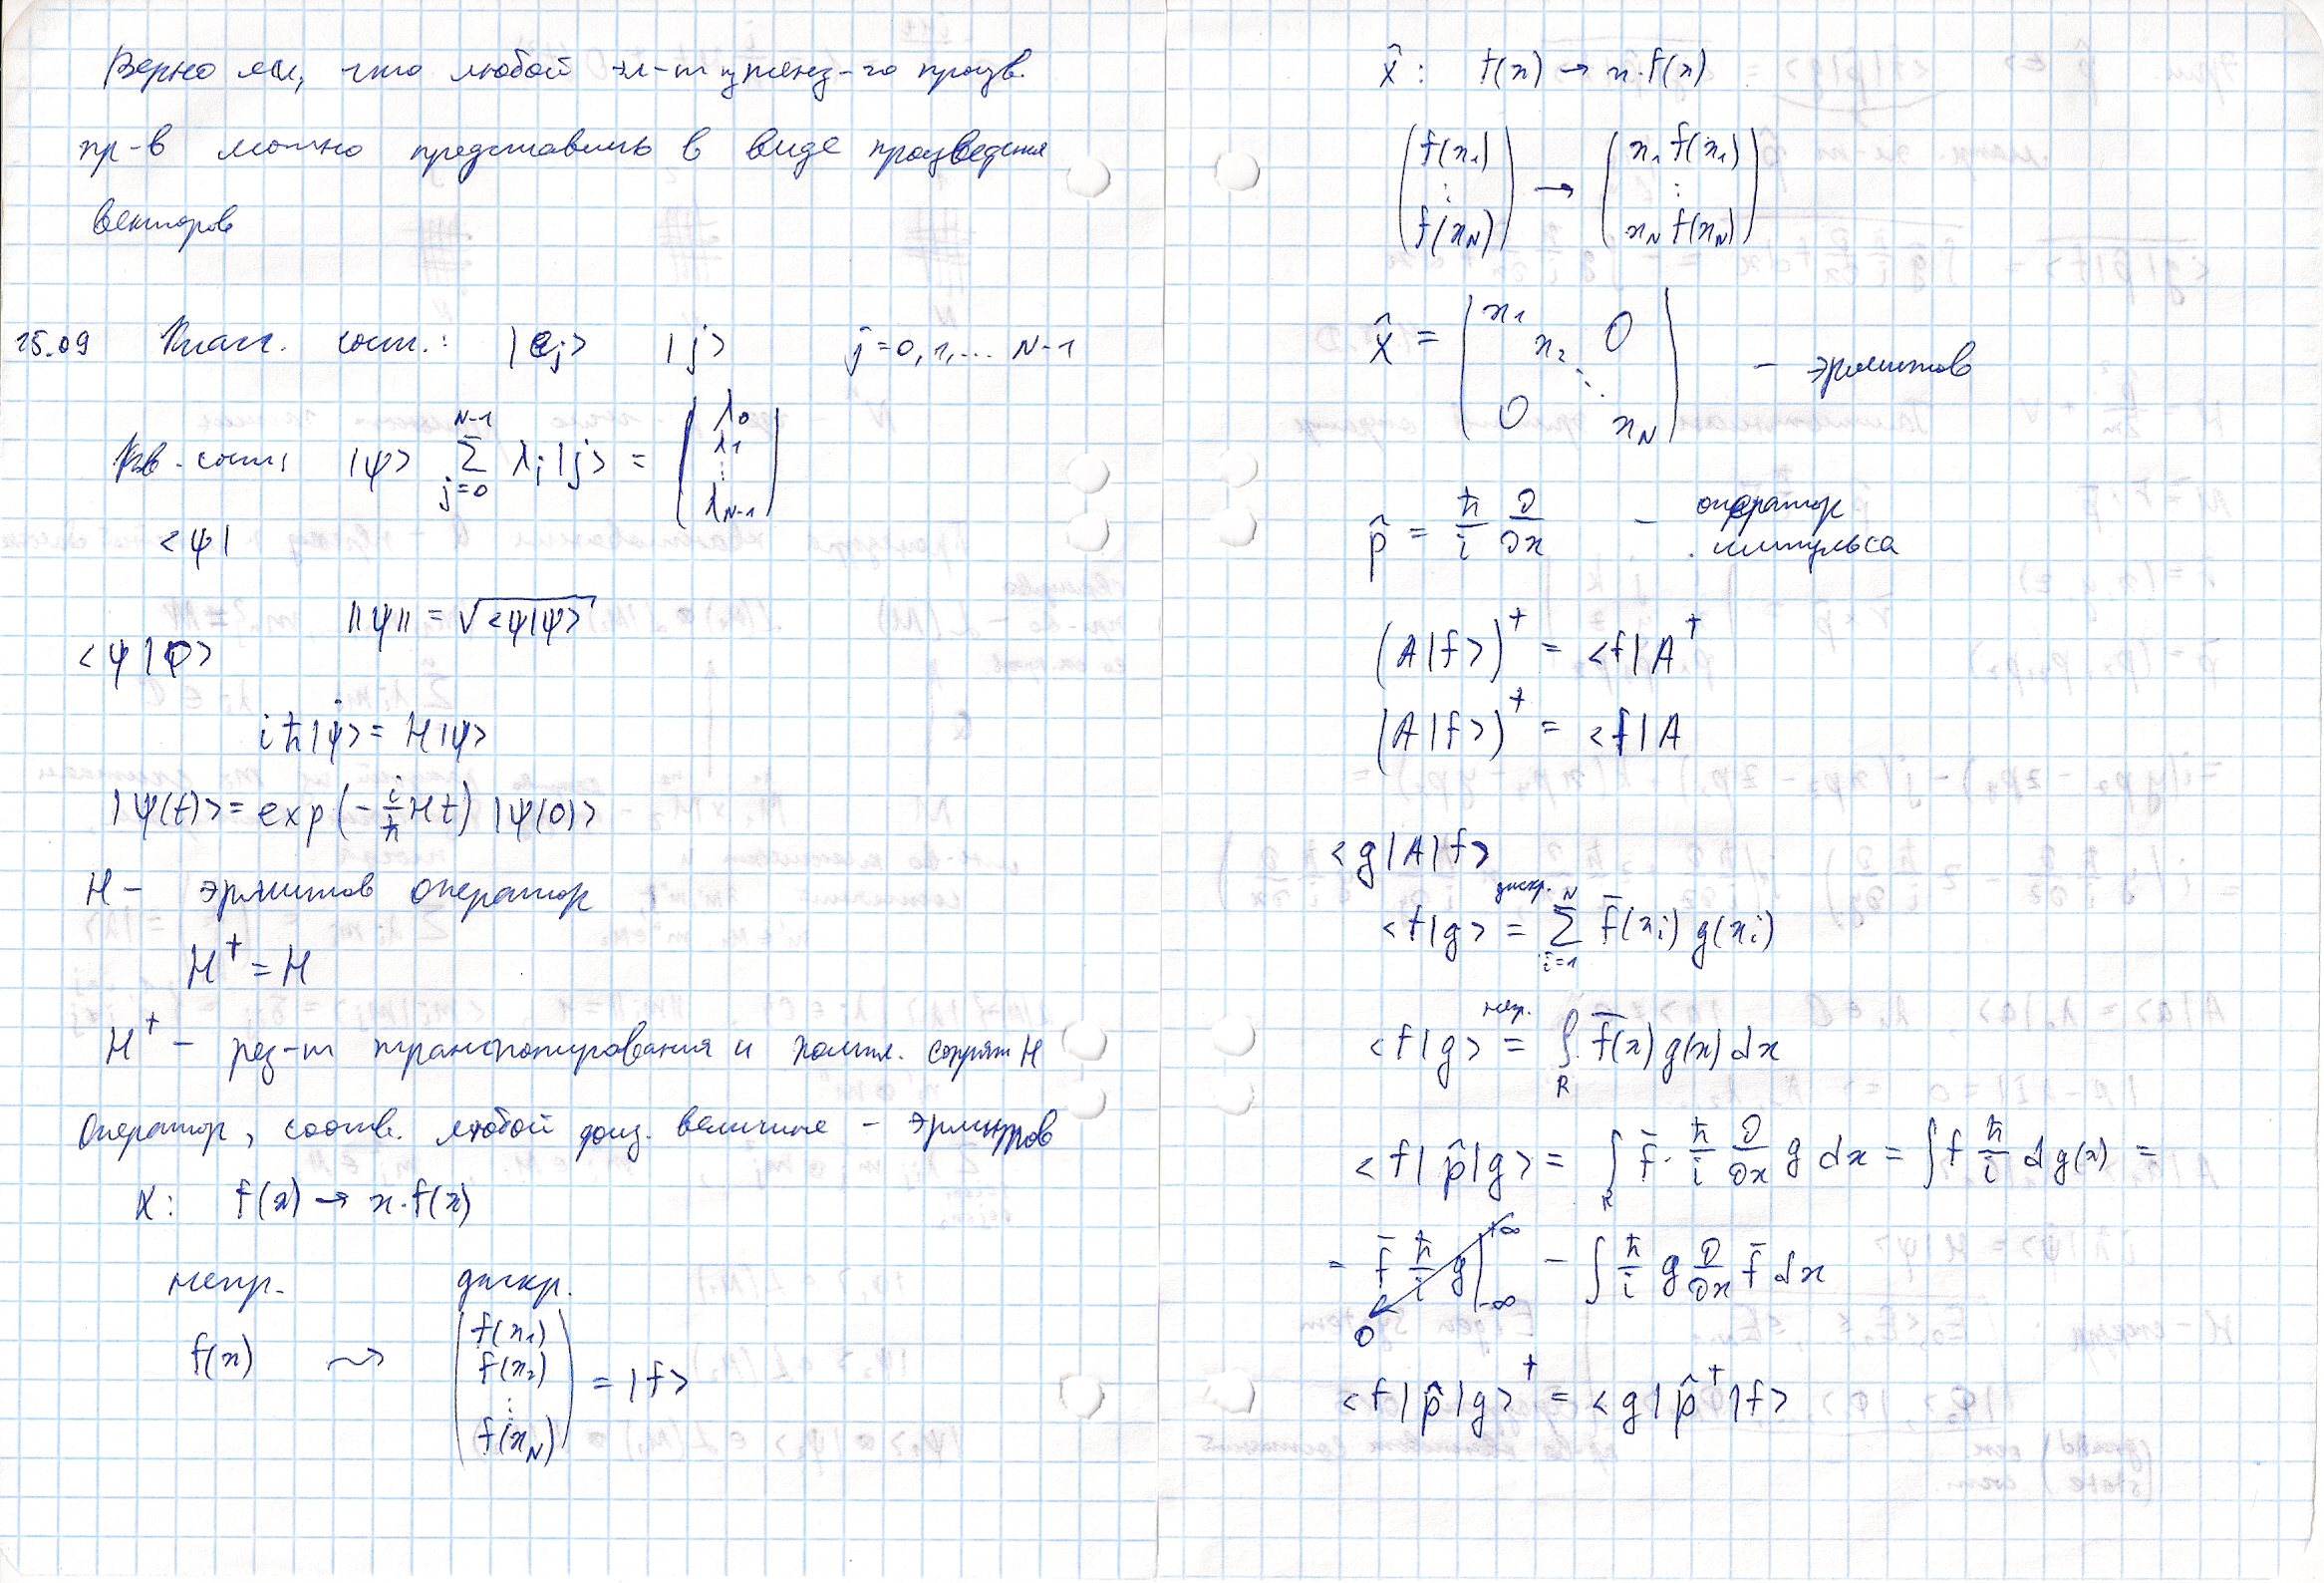 Верно ли, что любой эл-т тенз-го произв.
пр-в можно представить в виде произведения
векторов
15.09 Класс. сост.: |e_j> |j> j=0,1,... N-1
Кв. сост: |ψ> ∑_{j=0}^{N-1} λ_j |j> = (λ_0 λ_1 ⋮ λ_{N-1})
<ψ|
||ψ|| = √<ψ|ψ>
<ψ|φ>
iħ|ψ̇> = H|ψ>
|ψ(t)> = exp(-i/ħ Ht) |ψ(0)>
H - эрмитов оператор
H† = H
H† - рез-т транспонирования и компл. сопряж H
Оператор, соотв. любой физ. величине - эрмитов
X: f(x) → x·f(x)
непр. дискр.
f(x) ⇝ (f(x_1) f(x_2) ⋮ f(x_N)) = |f>
x̂: f(x) → x·f(x)
(f(x_1) ⋮ f(x_N)) → (x_1 f(x_1) ⋮ x_N f(x_N))
x̂ = (x_1 x_2 ⋱ x_N 0 0) - эрмитов
p̂ = ħ/i ∂/∂x - оператор
импульса
(A|f>)† = <f|A†
(A|f>)† = <f|A
<g|A|f>
<f|g> дискр. = ∑_{i=1}^{N} f̄(x_i) g(x_i)
<f|g> непр. = ∫_R f̄(x) g(x) dx
<f|p̂|g> = ∫_R f̄· ħ/i ∂/∂x g dx = ∫ f ħ/i dg(x) =
= f̄ ħ/i g |_{-∞}^{+∞} - ∫ ħ/i g ∂/∂x f̄ dx
0
<f|p̂|g>† = <g|p̂†|f>